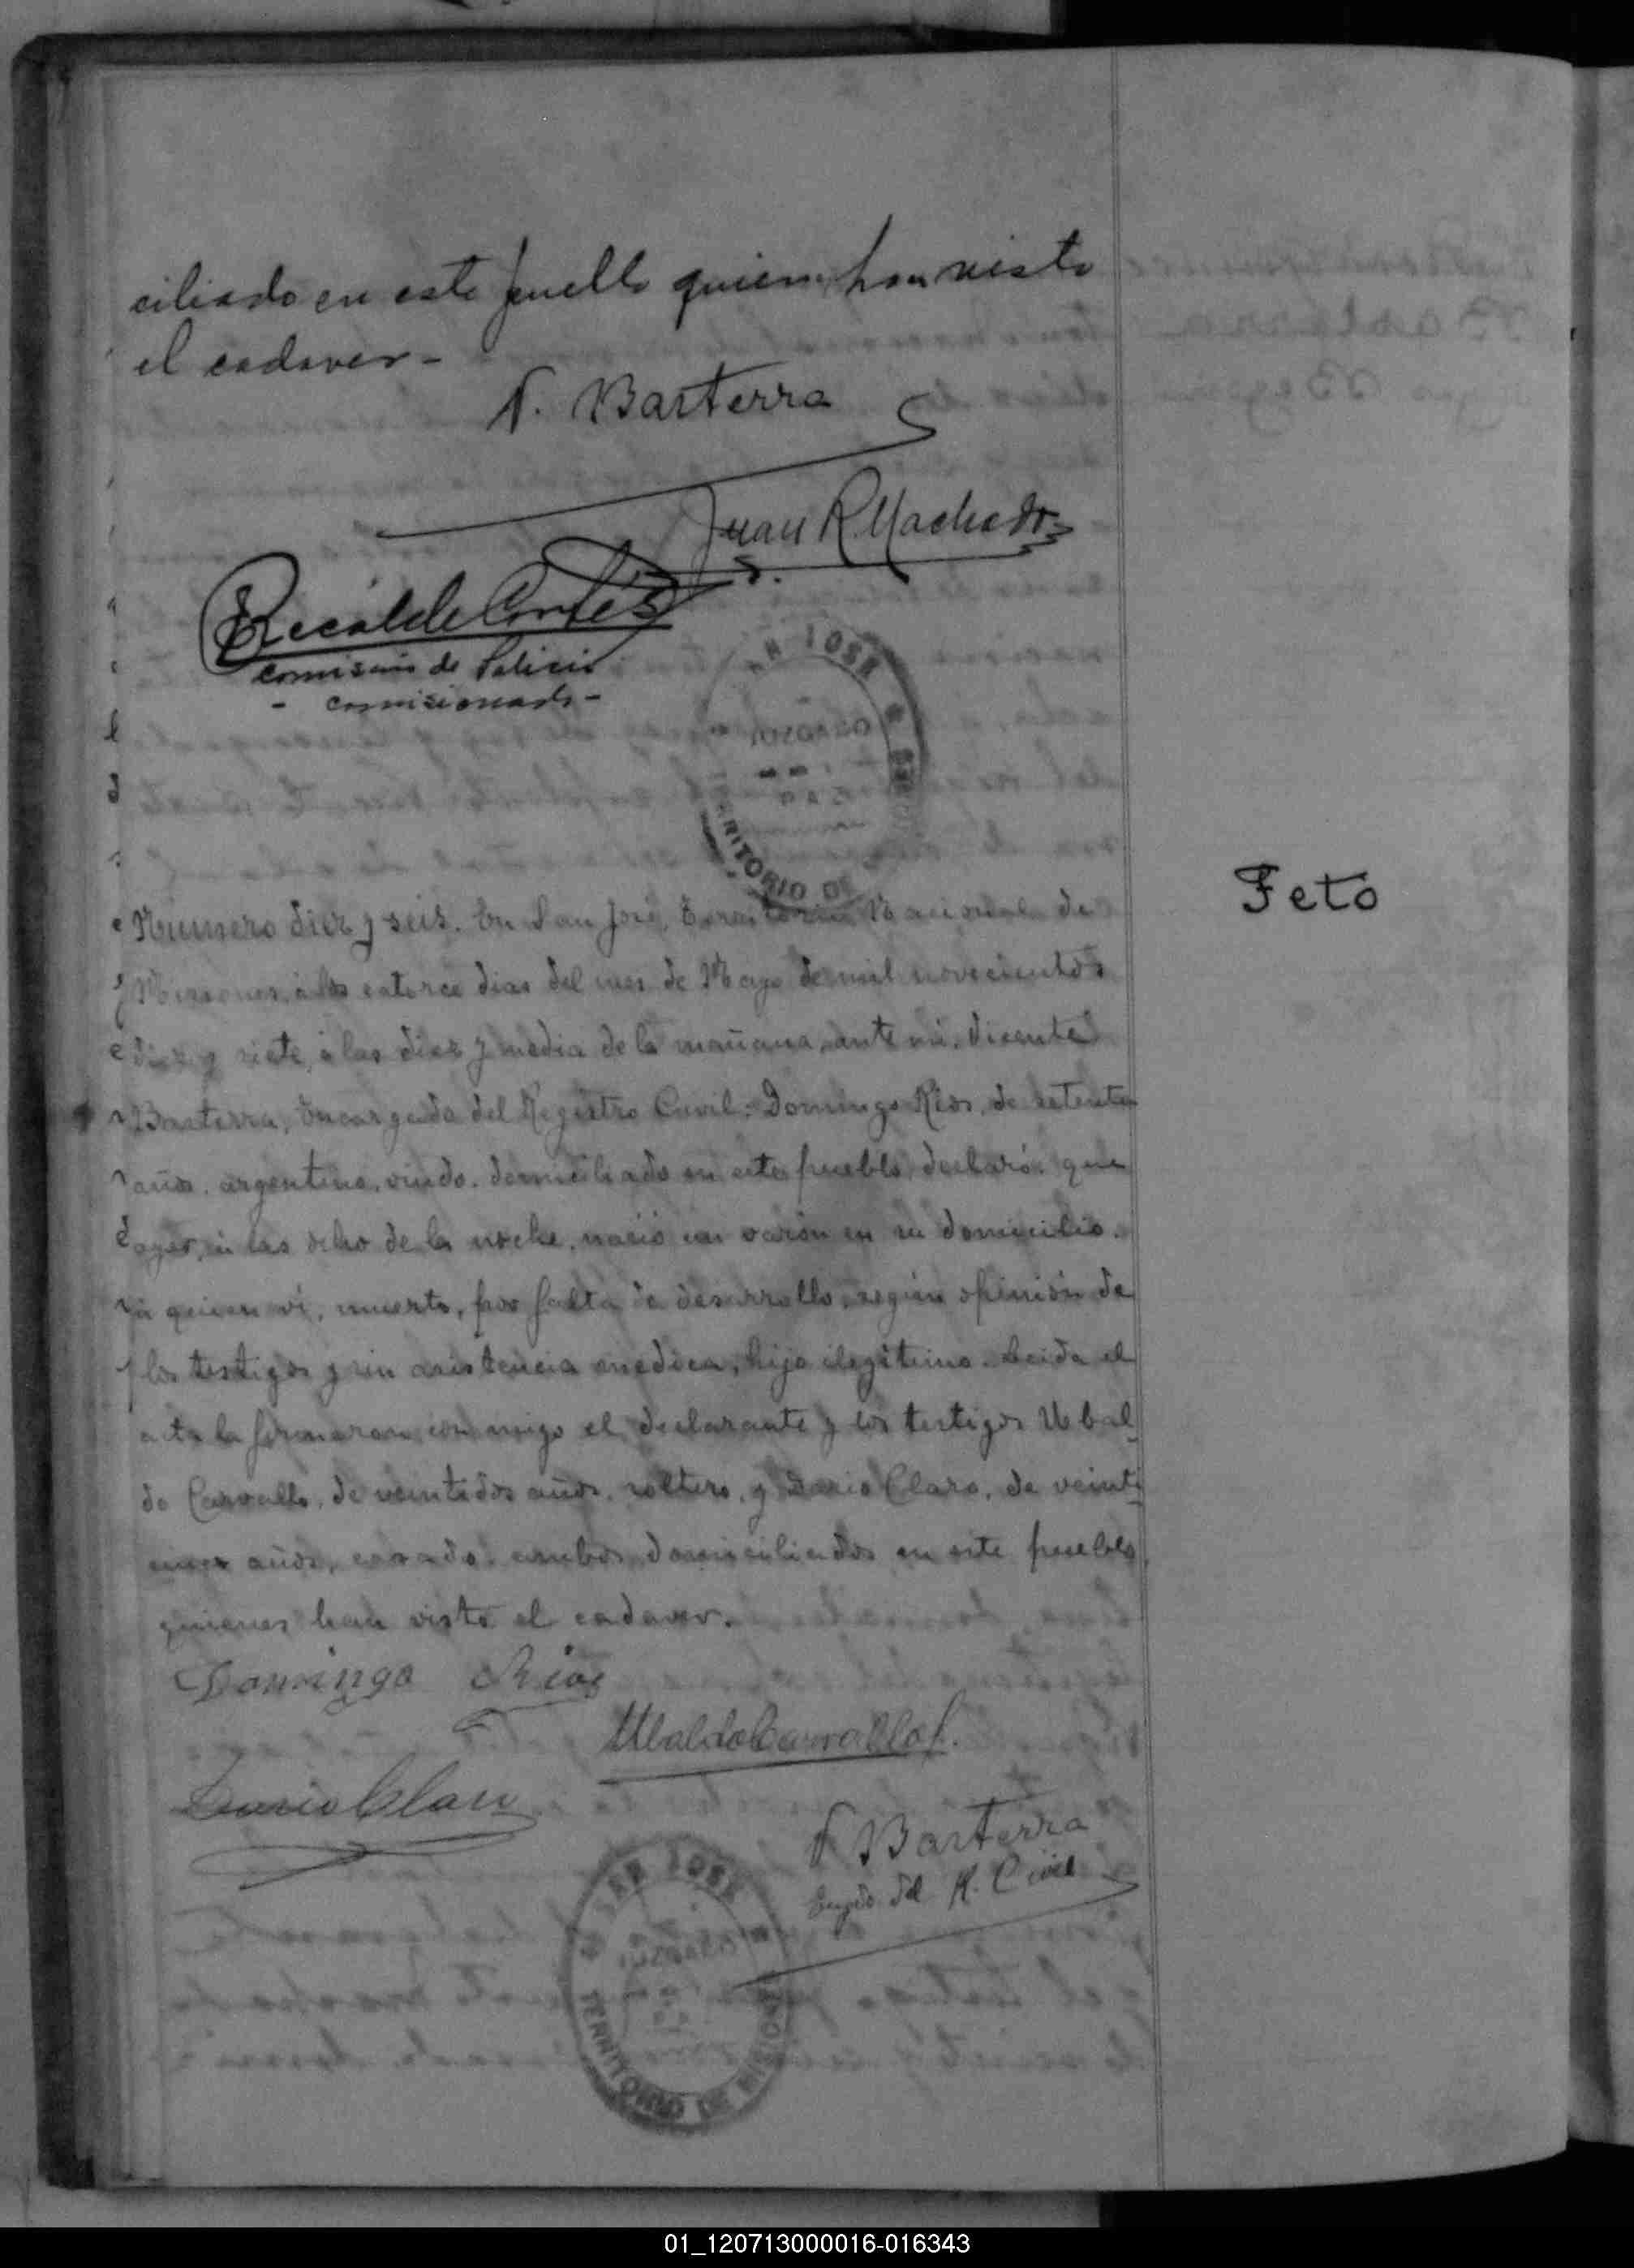 ciliado en este pueblo quien han visto
el cadaver-
V. Basterra
Juan R. Machado
Recalde Cortés
Comisario de Policia
- Comisionado -
SAN JOSE
TERRITORIO DE
Feto
Número diez y seis. En San José, Territorio Nacional de
Misiones, á los catorce dias del mes de Mayo de mil novecientos
diez y siete, á las diez y media de la mañana, ante mi, Vicente
Basterra, Encargado del Registro Civil: Domingo Rios, de setenta
años, argentino, viudo, domiciliado en este pueblo, declaró: que
ayer, á las ocho de la noche, nació un varón en su domicilio,
á quien vi, muerto, por falta de desarrollo, según opinión de
los testigos y sin asistencia medica, hijo ilegítimo. Leida el
acta la firmaron conmigo el declarante y los testigos Ubal
do Carvallo, de veintidos años, soltero, y Dario Claro, de veinti
cinco años, casado, ambos domiciliados en este pueblo,
quienes han visto el cadaver.
Domingo Rios
Ubaldo Carvallo
Dario Claro
V Basterra
Engdo del R. Civil
SAN JOSE
TERRITORIO DE MISIONES
01_120713000016-016343